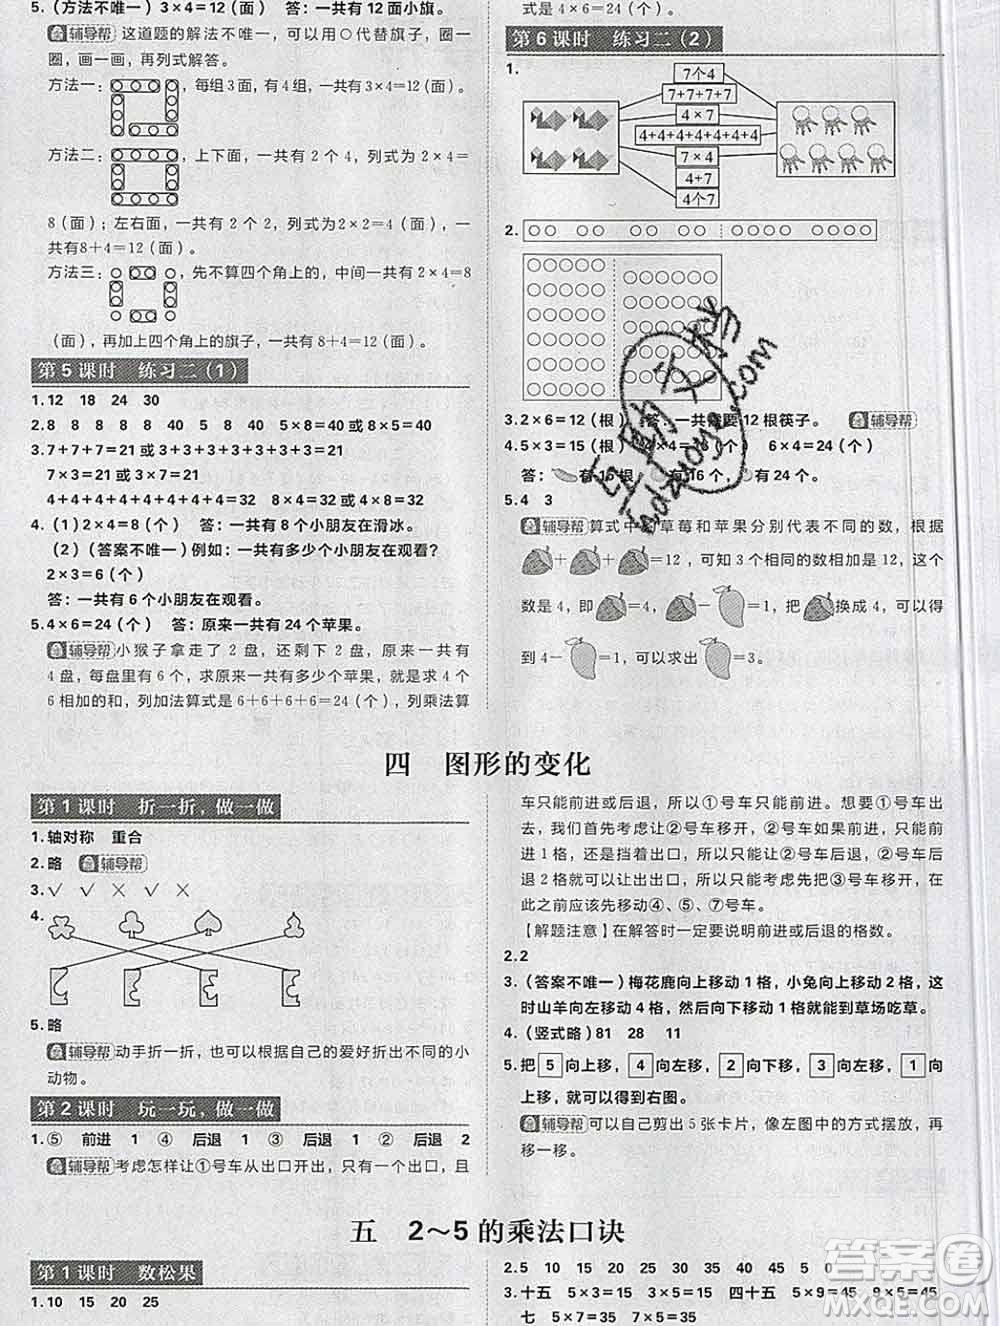 5.(方法不唯一)3×4=12(面) 答:一共有12面小旗。
辅导帮 这道题的解法不唯一,可以用○代替旗子,圈一
圈,画一画,再列式解答。
方法一: ,每组3面,有4组,一共有3×4=12(面)
方法二: ,上下面,一共有2个4,列式为2×4=
8(面);左右面,一共有2个2,列式为2×2=4(面),一
共有8+4=12(面)。
方法三: ,先不算四个角上的,中间一共有2×4=8
(面),再加上四个角上的旗子,一共有8+4=12(面)。
第5课时 练习二(1)
1.12 18 24 30
2.8 8 8 8 8 5 40 5×8=40或8×5=40
3.7+7+7=21或3+3+3+3+3+3+3=21
7×3=21或3×7=21
4+4+4+4+4+4+4+4=32 8×4=32或4×8=32
4.(1)2×4=8(个) 答:一共有8个小朋友在滑冰。
(2)(答案不唯一)例如:一共有多少个小朋友在观看?
2×3=6(个)
答:一共有6个小朋友在观看。
5.4×6=24(个) 答:原来一共有24个苹果。
辅导帮 小猴子拿走了2盘,还剩下2盘,原来一共有
4盘,每盘里有6个,求原来一共有多少个苹果,就是求4个
6相加的和,列加法算式是6+6+6+6=24(个),列乘法算
式是4×6=24(个)。
第6课时 练习二(2)
1.
7个4
7+7+7+7
4×7
4+4+4+4+4+4+4
7×4
4+7
4个7
2.
3.2×6=12(根) 答:一共需要12根筷子。 辅导帮
4.5×3=15(根) 4×4=16(个) 6×4=24(个)
答: 有15根, 有16个, 有24个。
5.4 3
辅导帮 算式中的草莓和苹果分别代表不同的数,根据
+ + =12,可知3个相同的数相加是12,这个
数是4,即 =4, - =1,把 换成4,可以得
到4- =1,可以求出 =3。
四 图形的变化
第1课时 折一折,做一做
1.轴对称 重合
2.略 辅导帮
3.√ √ × √ √
4.
5.略
辅导帮 动手折一折,也可以根据自己的爱好折出不同的小
动物。
第2课时 玩一玩,做一做
1.⑤ 前进 1 ④ 后退 1 ⑦ 后退 1 ② 后退 2
辅导帮 考虑怎样让①号车从出口开出,只有一个出口,且
车只能前进或后退,所以①号车只能前进。想要①号车出
去,我们首先考虑让②号车移开,②号车如果前进,只能前
进1格,还是挡着出口,所以只能考虑让②号车后退,后
退2格就可以让出出口,再考虑把③号车移开,在
此之前应该先移动④、⑤、⑦号车。
【解题注意】在解答时一定要说明前进或后退的格数。
2.2
3.(答案不唯一)梅花鹿向上移动1格,小兔向上移动2格,这
时山羊向左移动4格,然后向下移动1格就能到草场吃草。
4.(竖式略)81 28 11
5.把5向上移,4向左移,2向下移,3向左移,1向
上移,就可以得到右图。
辅导帮 可以自己剪出5张卡片,像左图中的方式摆放,再
移一移。
五 2～5的乘法口诀
第1课时 数松果
1.10 15 20 25
2.5 10 20 30 35 40 45 5 0
3.十五 5×3=15 四十五 5×9=45 9×5=45
七 5×7=35 7×5=35
答案圈
MXQE.COM